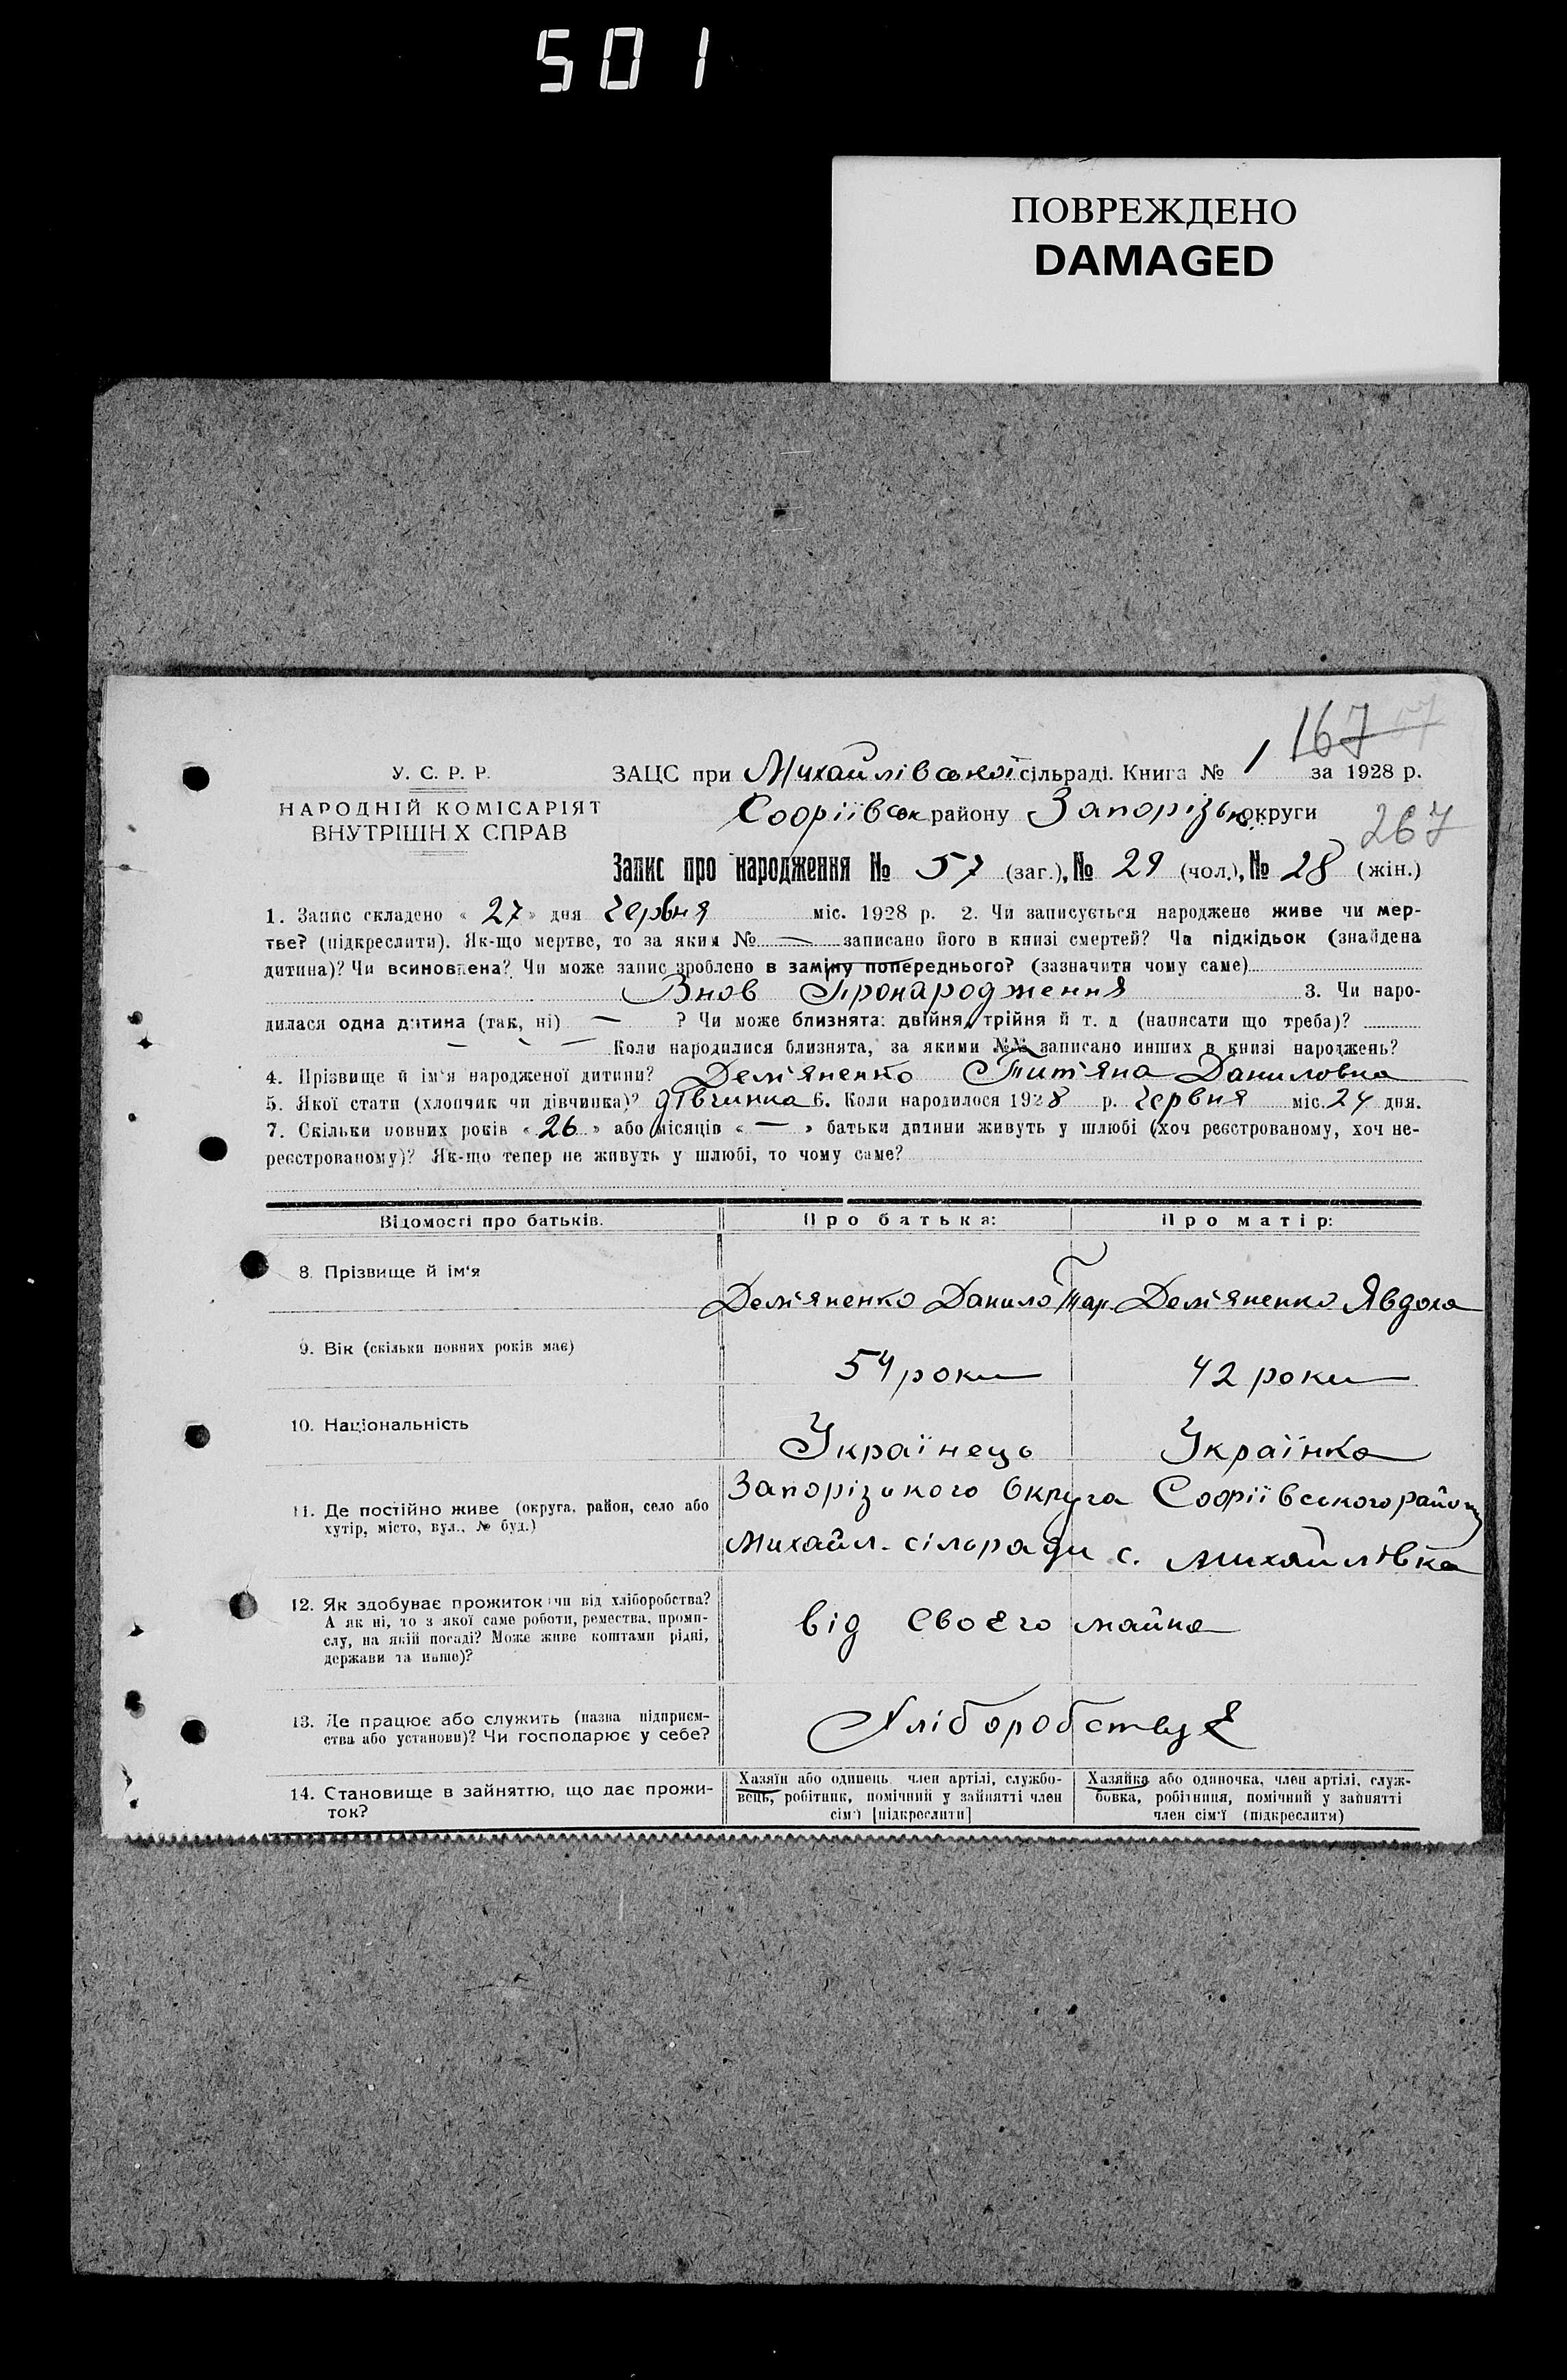 501
ПОВРЕЖДЕНО
DAMAGED
167
У. С. Р. Р.
НАРОДНІЙ КОМІСАРІЯТ
ВНУТРІШН Х СПРАВ
ЗАЦС при Михайлівської сільраді. Книга № 1 за 1928 р.
Софріївськ району Запорізьк округи
267
Запис про народження № 57 (заг.), № 29 (чол.), № 28 (жін.)
1. Запис складено « 27 » дня Червня міс. 1928 р. 2. Чи записується народжене живе чи мер-
тве? (підкреслити). Як-що мертве, то за яким № — записано його в книзі смертей? Чи підкідьок (знайдена
дитина)? Чи всиновлена? Чи може запис зроблено в заміну попереднього? (зазначити чому саме)
Внов Пронародження 3. Чи наро-
дилася одна дитина (так, ні) — ? Чи може близнята: двійня, трійня й т. д (написати що треба)?
— — — Коли народилися близнята, за якими №№ записано инших в книзі народжень?
4. Прізвище й ім'я народженої дитини? Дем'яненко Тит'яна Даниловна
5. Якої стати (хлопчик чи дівчинка)? дівчинка 6. Коли народилося 1928 р. Червня міс. 24 дня.
7. Скільки повних років « 26 » або місяців « — » батьки дитини живуть у шлюбі (хоч реєстрованому, хоч не-
реєстрованому)? Як-що тепер не живуть у шлюбі, то чому саме?
Відомості про батьків. Про батька: Про матір:
8. Прізвище й ім'я Дем'яненко Данило Тар. Дем'яненко Явдоха
9. Вік (скільки повних років має) 54 роки 42 роки
10. Національність Українець Українка
11. Де постійно живе (округа, район, село або
хутір, місто, вул., № буд.)
Запорізького Округа Софріївського району
Михайл. сільради с. Михайлівка
12. Як здобуває прожиток чи від хліборобства?
А як ні, то з якої саме роботи, ремества, проми-
слу, на якій посаді? Може живе коштами рідні,
держави та инше)?
від своєго майна
13. Де працює або служить (назва підприєм-
ства або установи)? Чи господарює у себе?
Хліборобствує
14. Становище в зайняттю, що дає прожи-
ток?
Хазяїн або одинець, член артілі, службо-
вець, робітник, помічний у зайнятті член
сім'ї [підкреслити]
Хазяйка або одиночка, член артілі, служ-
бовка, робітниця, помічний у зайнятті
член сім'ї (підкреслити)